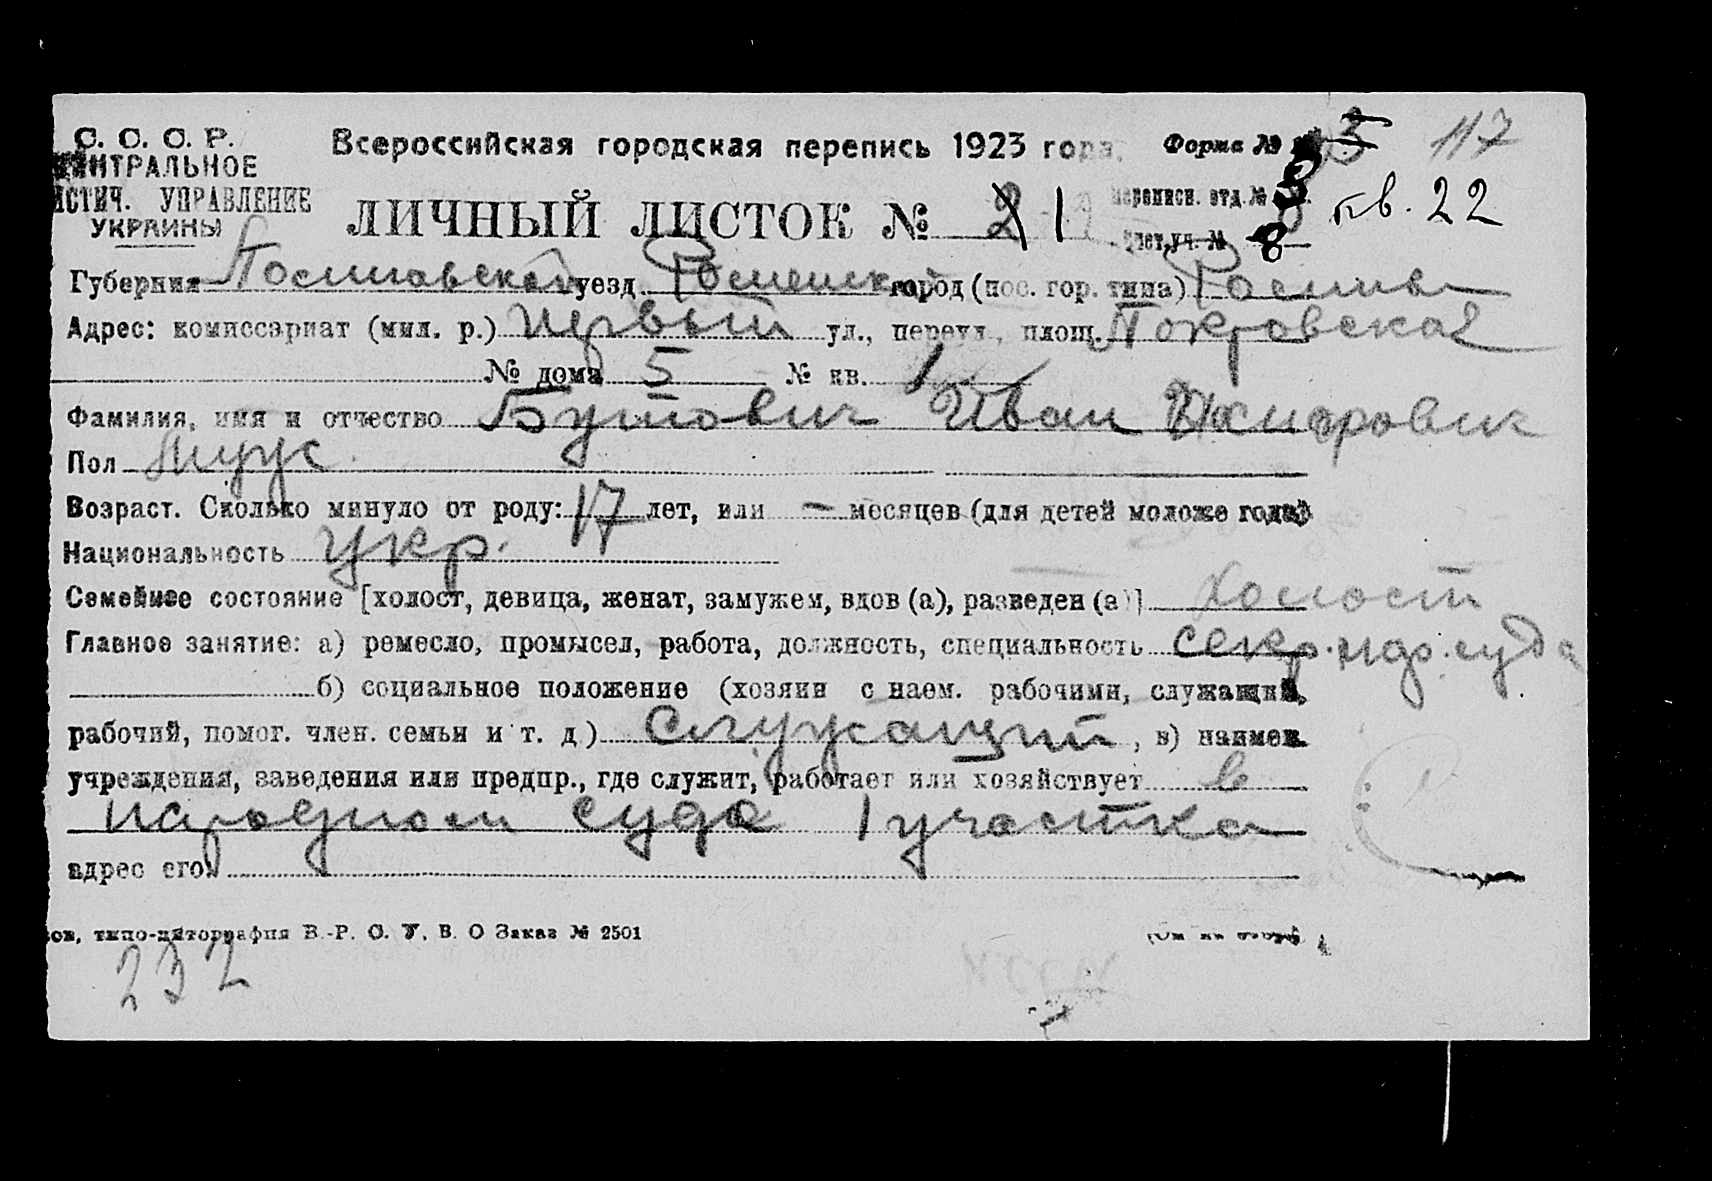 С. С. С. Р.
ЦЕНТРАЛЬНОЕ
ИСТИЧ. УПРАВЛЕНИЕ
УКРАИНЫ
Всероссийская городская перепись 1923 года.
Форма № 3 117
ЛИЧНЫЙ ЛИСТОК № 2 1
Переписн. отд. № 8 кв. 22
Счет. уч. № 8
Губерния Полтавской уезд Роменск. город (пос. гор. типа) Ромны
Адрес: комиссариат (мил. р.) первый ул., переул., площ. Покровская
№ дома 5 № кв. 1
Фамилия, имя и отчество Бутович Иван
Пол Муж.
Возраст. Сколько минуло от роду: 17 лет, или — месяцев (для детей моложе года)
Национальность Укр.
Семейное состояние [холост, девица, женат, замужем, вдов (а), разведен (а)] Холост
Главное занятие: а) ремесло, промысел, работа, должность, специальность секр. нар. суда
б) социальное положение (хозяин с наем. рабочими, служащий,
рабочий, помог. член. семьи и т. д) Служащий, в) наимен.
учреждения, заведения или предпр., где служит, работает или хозяйствует в
народном суде 1 участка
адрес его
ков, типо-литография В.-Р. С. У. В. О Заказ № 2501
232